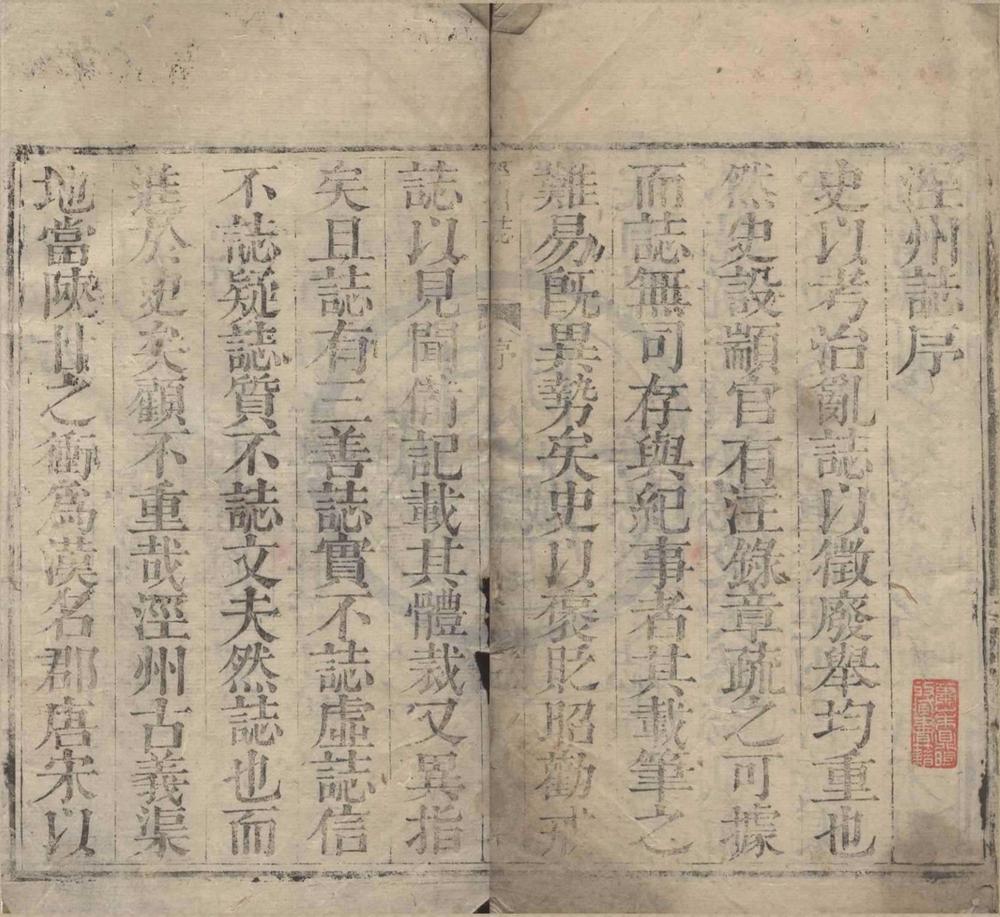 涇州誌序
史以考治亂誌以徵廢舉均重也
然史設顓官有注錄章疏之可據
而誌無可存與紀事者其載筆之
難易旣異勢矣史以褒貶昭勸戒
州誌
序
誌以見聞備記載其體裁又異指
矣且誌有三善誌實不誌虛誌信
不誌疑誌質不誌文夫然誌也而
進於史矣顧不重哉涇州古義渠
地當陝甘之衝爲漢名郡唐宋以